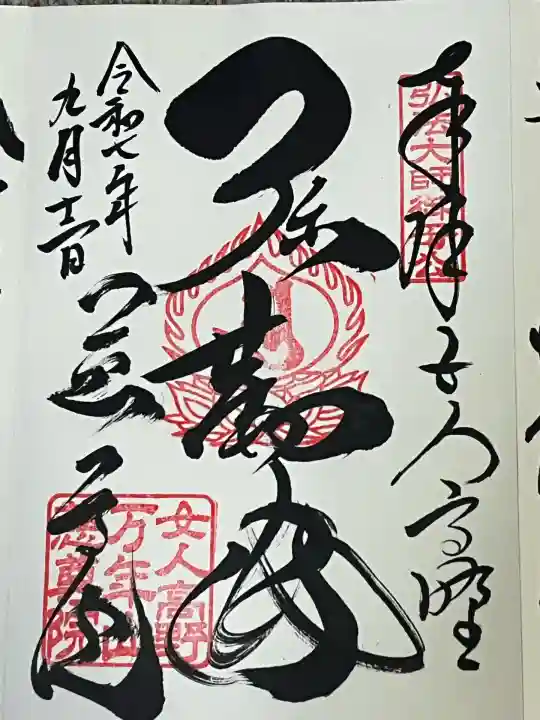 奉拝 女人高野
弘法大師御母公
弥勒佛
令和七年
九月十二日
慈尊院
女人高野
万年山
慈尊院